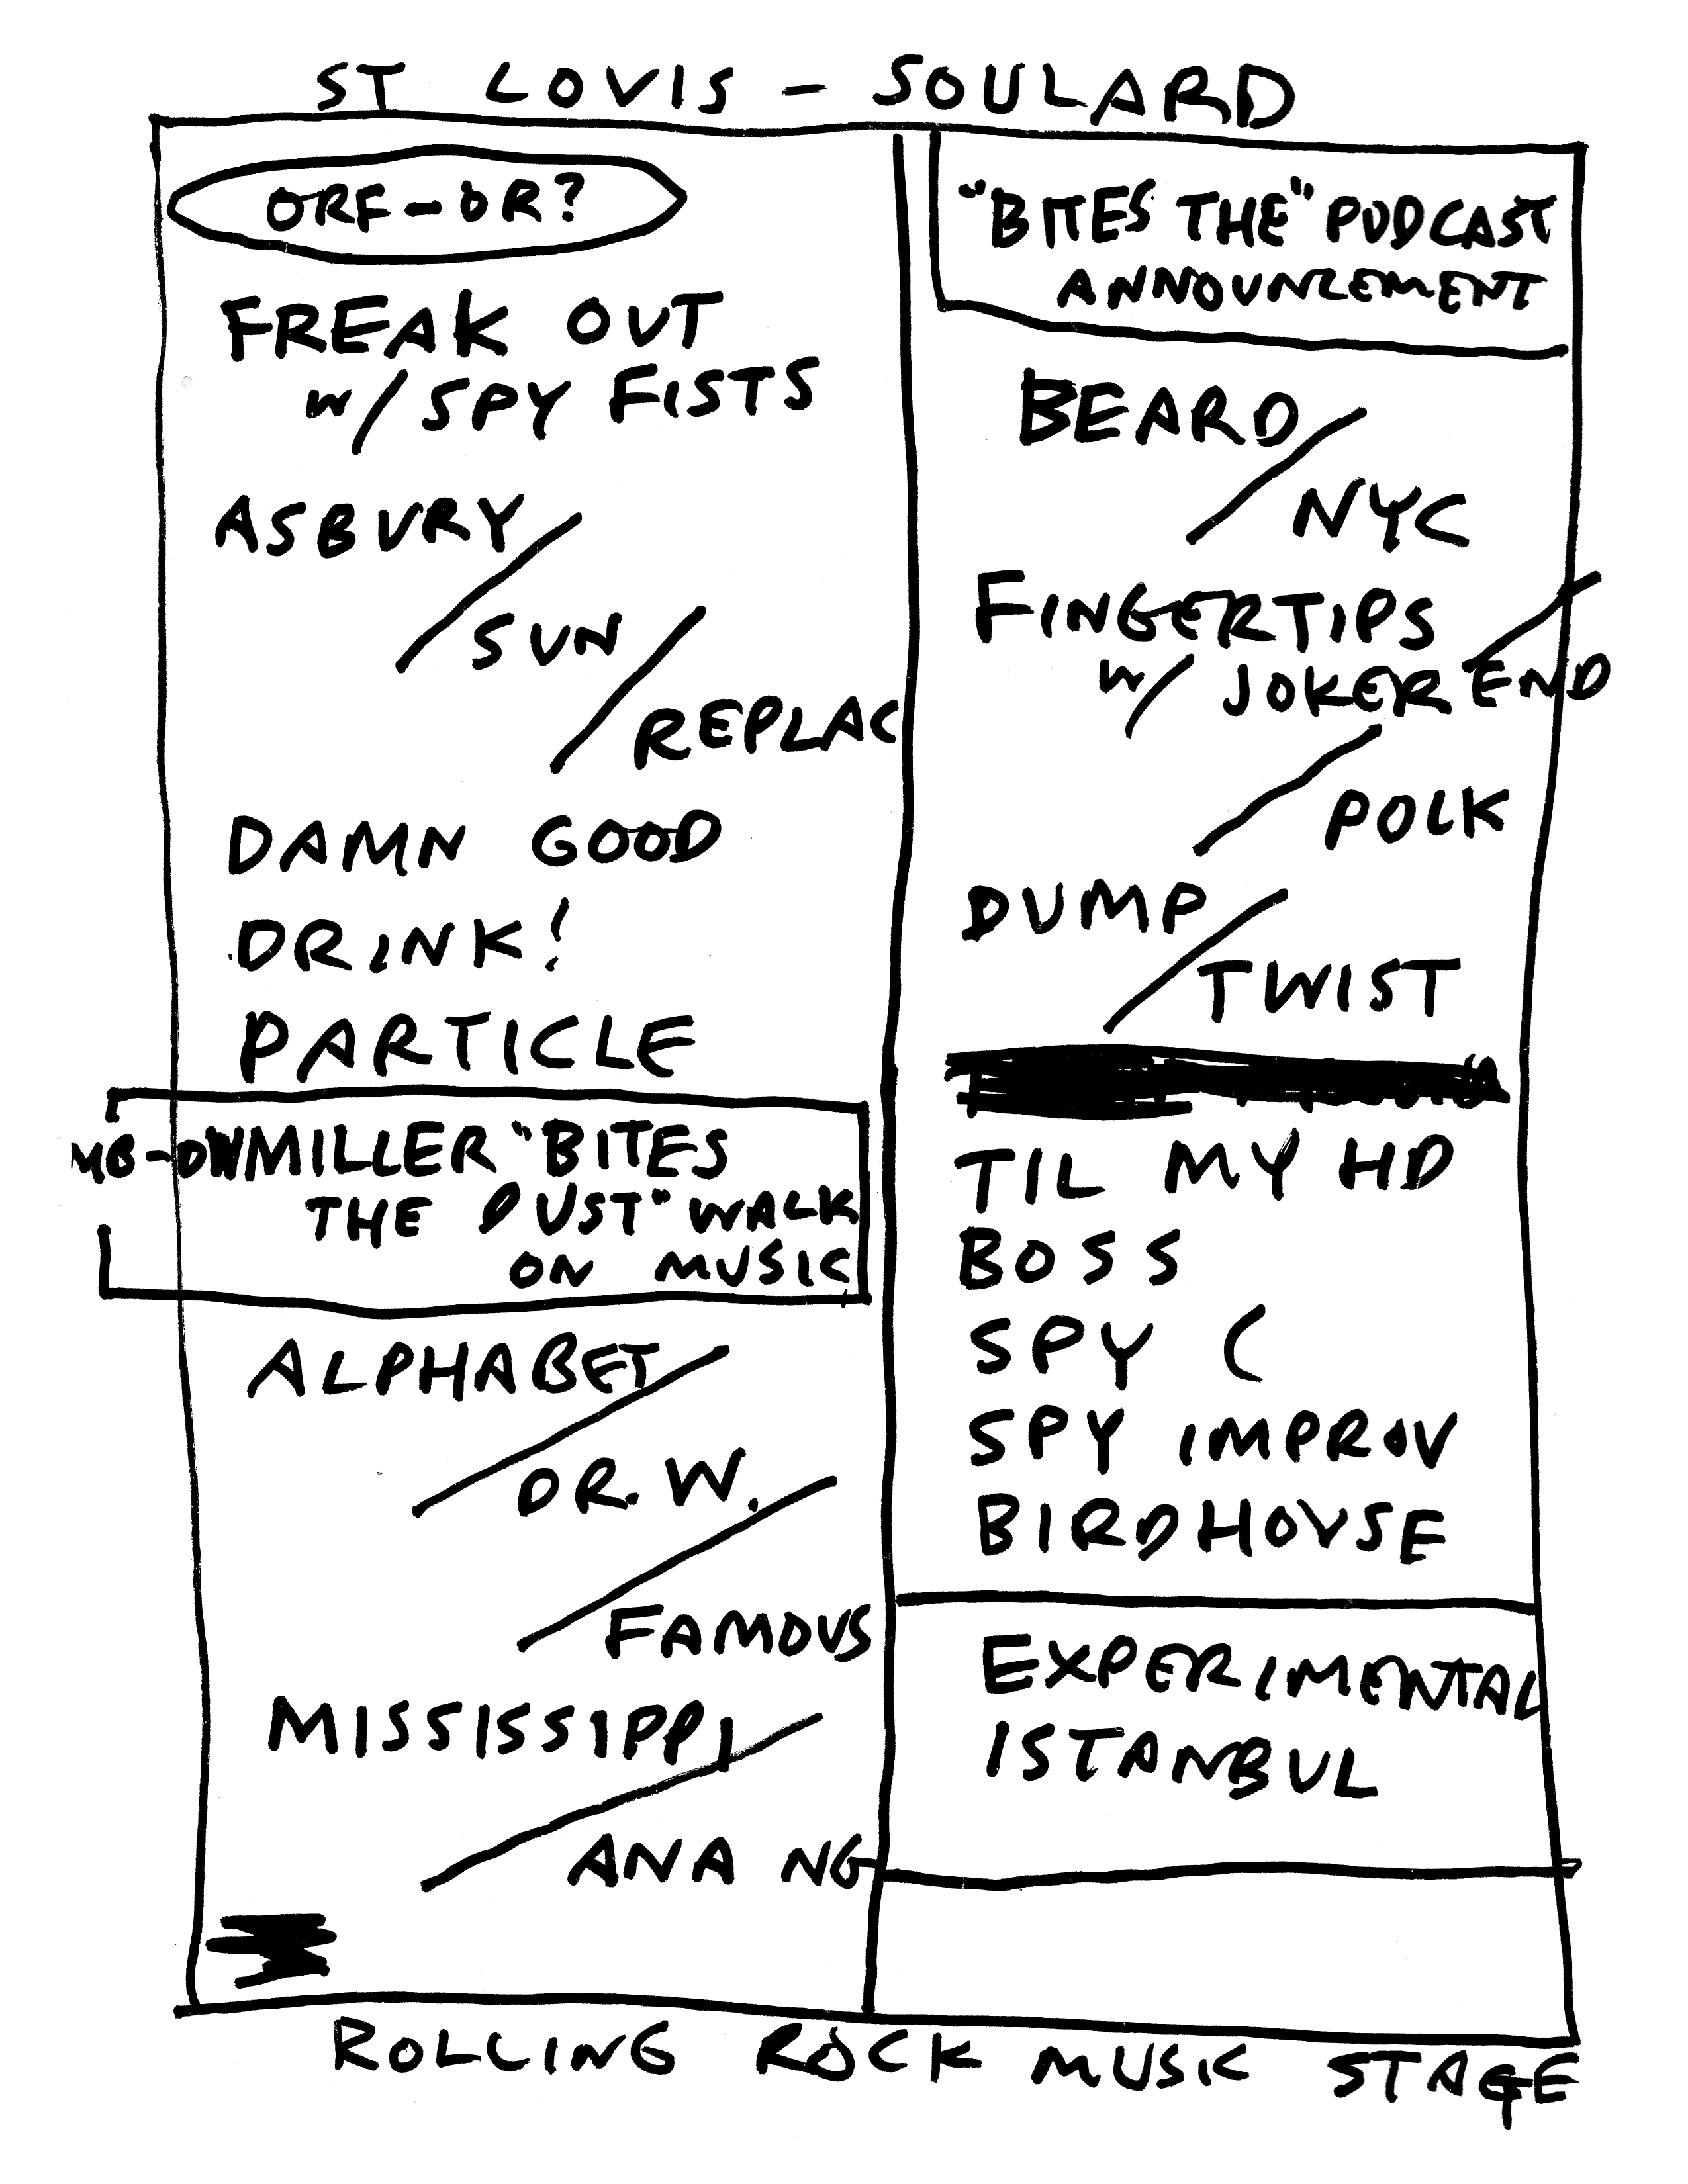 ST LOUIS - SOULARD
ORF-OR?
FREAK OUT
w/ SPY FISTS
ASBURY/
/SUN/
/REPLAC
DAMN GOOD
DRINK!
PARTICLE
MB-DWMILLER "BITES
THE DUST" WALK
ON MUSIC
ALPHABET/
/DR. W./
/FAMOUS
MISSISSIPPI/
/ANA NG
"BITES THE" PODCAST
ANNOUNCEMENT
BEARD/
/NYC
FINGERTIPS
w/ JOKER END
/POLK
DUMP/
/TWIST
TIL MY HD
BOSS
SPY (
SPY IMPROV
BIRDHOUSE
EXPERIMENTAL
ISTANBUL
ROLLING ROCK MUSIC STAGE